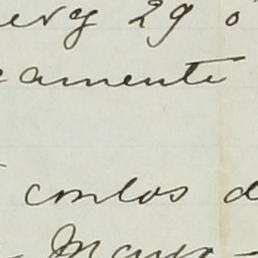 29 o
camente
con los d
Mayo